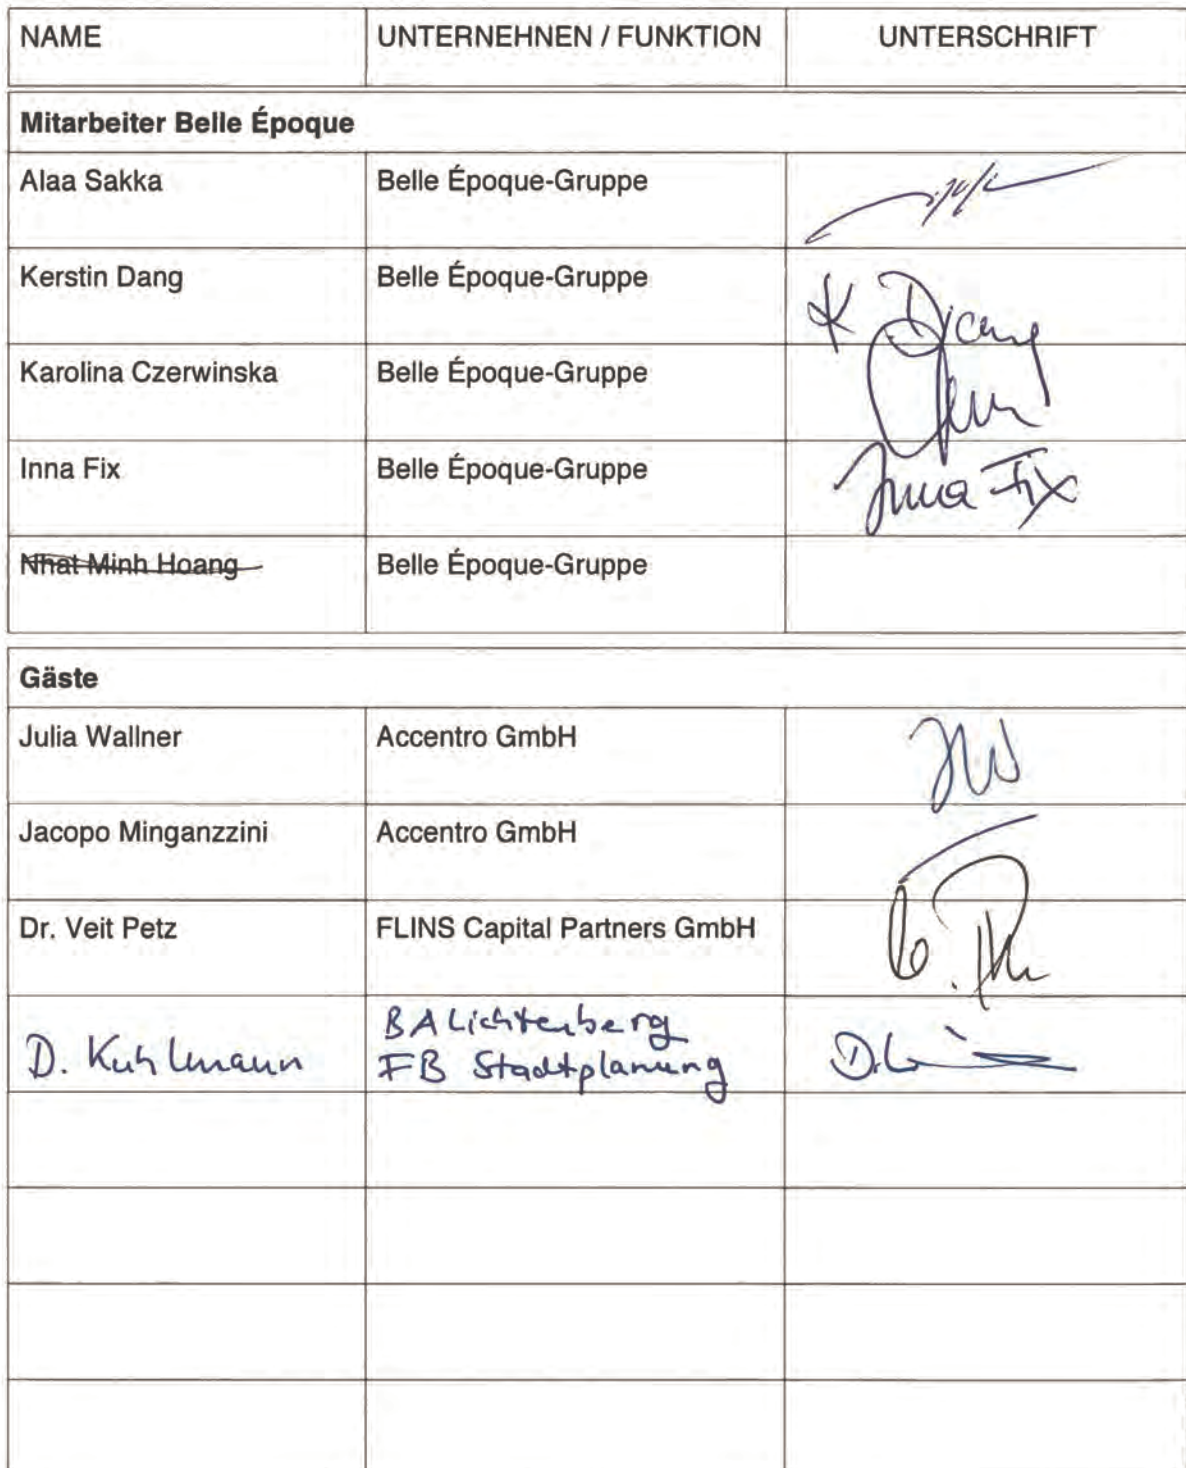 NAME UNTERNEHNEN / FUNKTION UNTERSCHRIFT
Mitarbeiter Belle Époque
Alaa Sakka Belle Époque-Gruppe
Kerstin Dang Belle Époque-Gruppe K Dang
Karolina Czerwinska Belle Époque-Gruppe
Inna Fix Belle Époque-Gruppe Inna Fix
Nhat Minh Hoang Belle Époque-Gruppe
Gäste
Julia Wallner Accentro GmbH JW
Jacopo Minganzzini Accentro GmbH
Dr. Veit Petz FLINS Capital Partners GmbH
BA Lichtenberg
D. Kuhlmann FB Stadtplanung